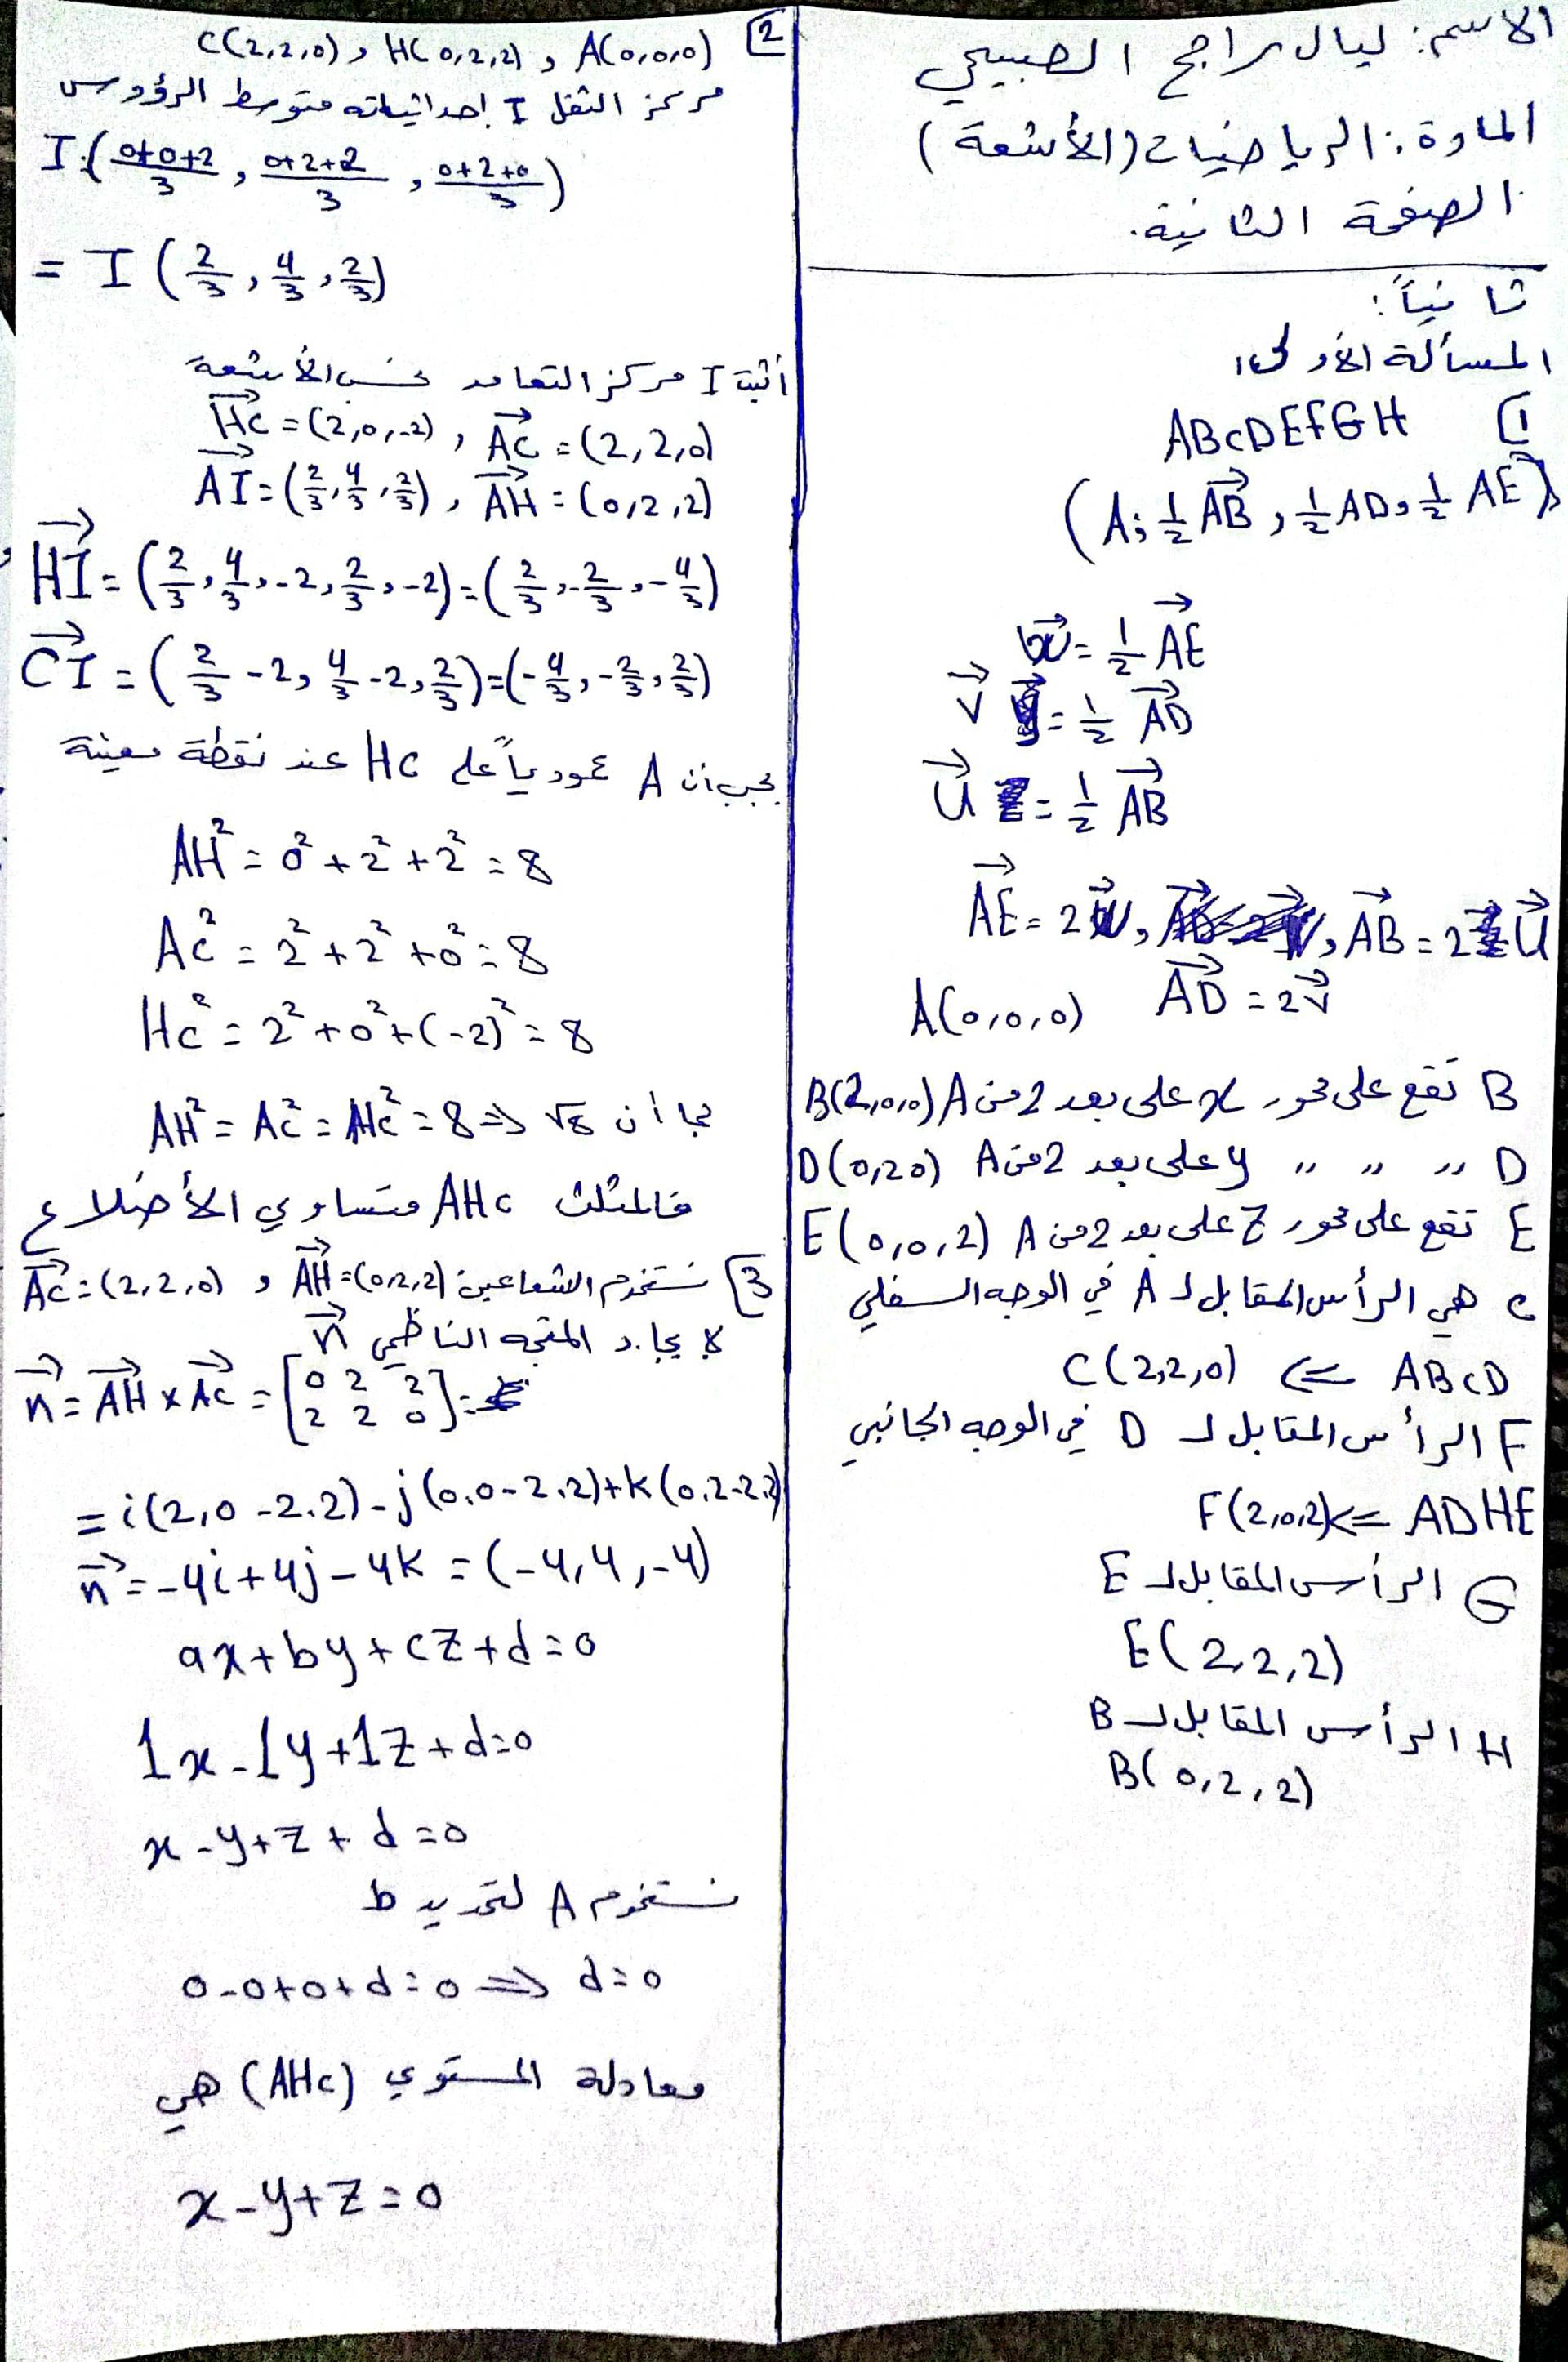 الاسم: ليال راجح الصبيحي
المادة: الرياضيات (الأشعة)
الصفحة الثانية.
ثانياً:
المسألة الأولى:
1 ABCDEFGH
(A; ½ AB, ½ AD, ½ AE)
w = ½ AE
v = ½ AD
u = ½ AB
AE = 2w, AB = 2u
A(0,0,0) AD = 2v
B تقع على محور x على بعد 2 من A B(2,0,0)
D 〃 〃 〃 y على بعد 2 من A D(0,20)
E تقع على محور Z على بعد 2 من A E(0,0,2)
C هي الرأس المقابل لـ A في الوجه السفلي
ABCD ⇐ C(2,2,0)
F الرأس المقابل لـ D في الوجه الجانبي
ADHE ⇐ F(2,0,2)
G الرأس المقابل لـ E
E(2,2,2)
H الرأس المقابل لـ B
B(0,2,2)
2 A(0,0,0) و H(0,2,2) و C(2,2,0)
مركز الثقل I إحداثياته متوسط الرؤوس
I:(0+0+2/3, 0+2+2/3, 0+2+0/3)
= I (2/3, 4/3, 2/3)
أثبت I مركز التعامد حسب الأشعة
HC = (2,0,-2), AC = (2,2,0)
AI = (2/3, 4/3, 2/3), AH = (0,2,2)
HI = (2/3, 4/3, -2, 2/3, -2) = (2/3, -2/3, -4/3)
CI = (2/3 - 2, 4/3 - 2, 2/3) = (-4/3, -2/3, 2/3)
يجب أن A عمودياً على HC عند نقطة معينة
AH² = 0² + 2² + 2² = 8
AC² = 2² + 2² + 0² = 8
HC² = 2² + 0² + (-2)² = 8
بما أن AH² = AC² = HC² = 8 ⇒ √8
فالمثلث AHC متساوي الأضلاع
3 نستخدم الشعاعين AH = (0,2,2) و AC = (2,2,0)
لايجاد المتجه الناظمي n
n = AH × AC = [0 2 2 / 2 2 0] =
= i(2,0 - 2.2) - j(0,0 - 2.2) + k(0.2 - 2.2)
n = -4i + 4j - 4k = (-4,4,-4)
ax + by + cz + d = 0
1x - 1y + 1z + d = 0
x - y + z + d = 0
نستخدم A لتحديد d
0 - 0 + 0 + d = 0 ⇒ d = 0
معادلة المستوي (AHC) هي
x - y + z = 0